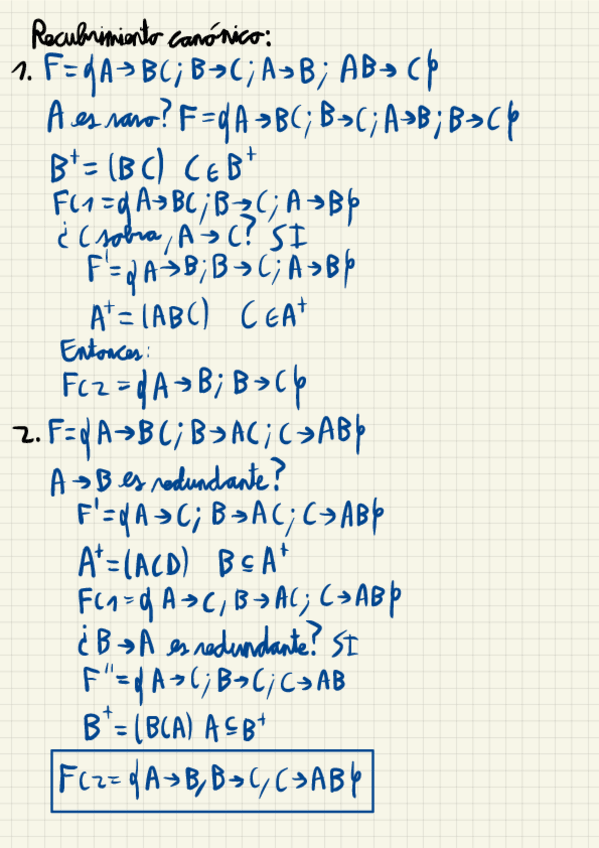 Recubrimiento canónico:
1. F={A→BC; B→C; A→B; AB→C}
A es raro? F={A→BC; B→C; A→B; B→C}
B⁺=(BC) C∈B⁺
FC1={A→BC; B→C; A→B}
¿C sobra, A→C? SI
F'={A→B; B→C; A→B}
A⁺=(ABC) C∈A⁺
Entonces:
FC2={A→B; B→C}
2. F={A→BC; B→AC; C→AB}
A→B es redundante?
F'={A→C; B→AC; C→AB}
A⁺=(ACD) B⊆A⁺
FC1={A→C, B→AC; C→AB}
¿B→A es redundante? SI
F''={A→C; B→C; C→AB
B⁺=(BCA) A⊆B⁺
FC2={A→B, B→C, C→AB}